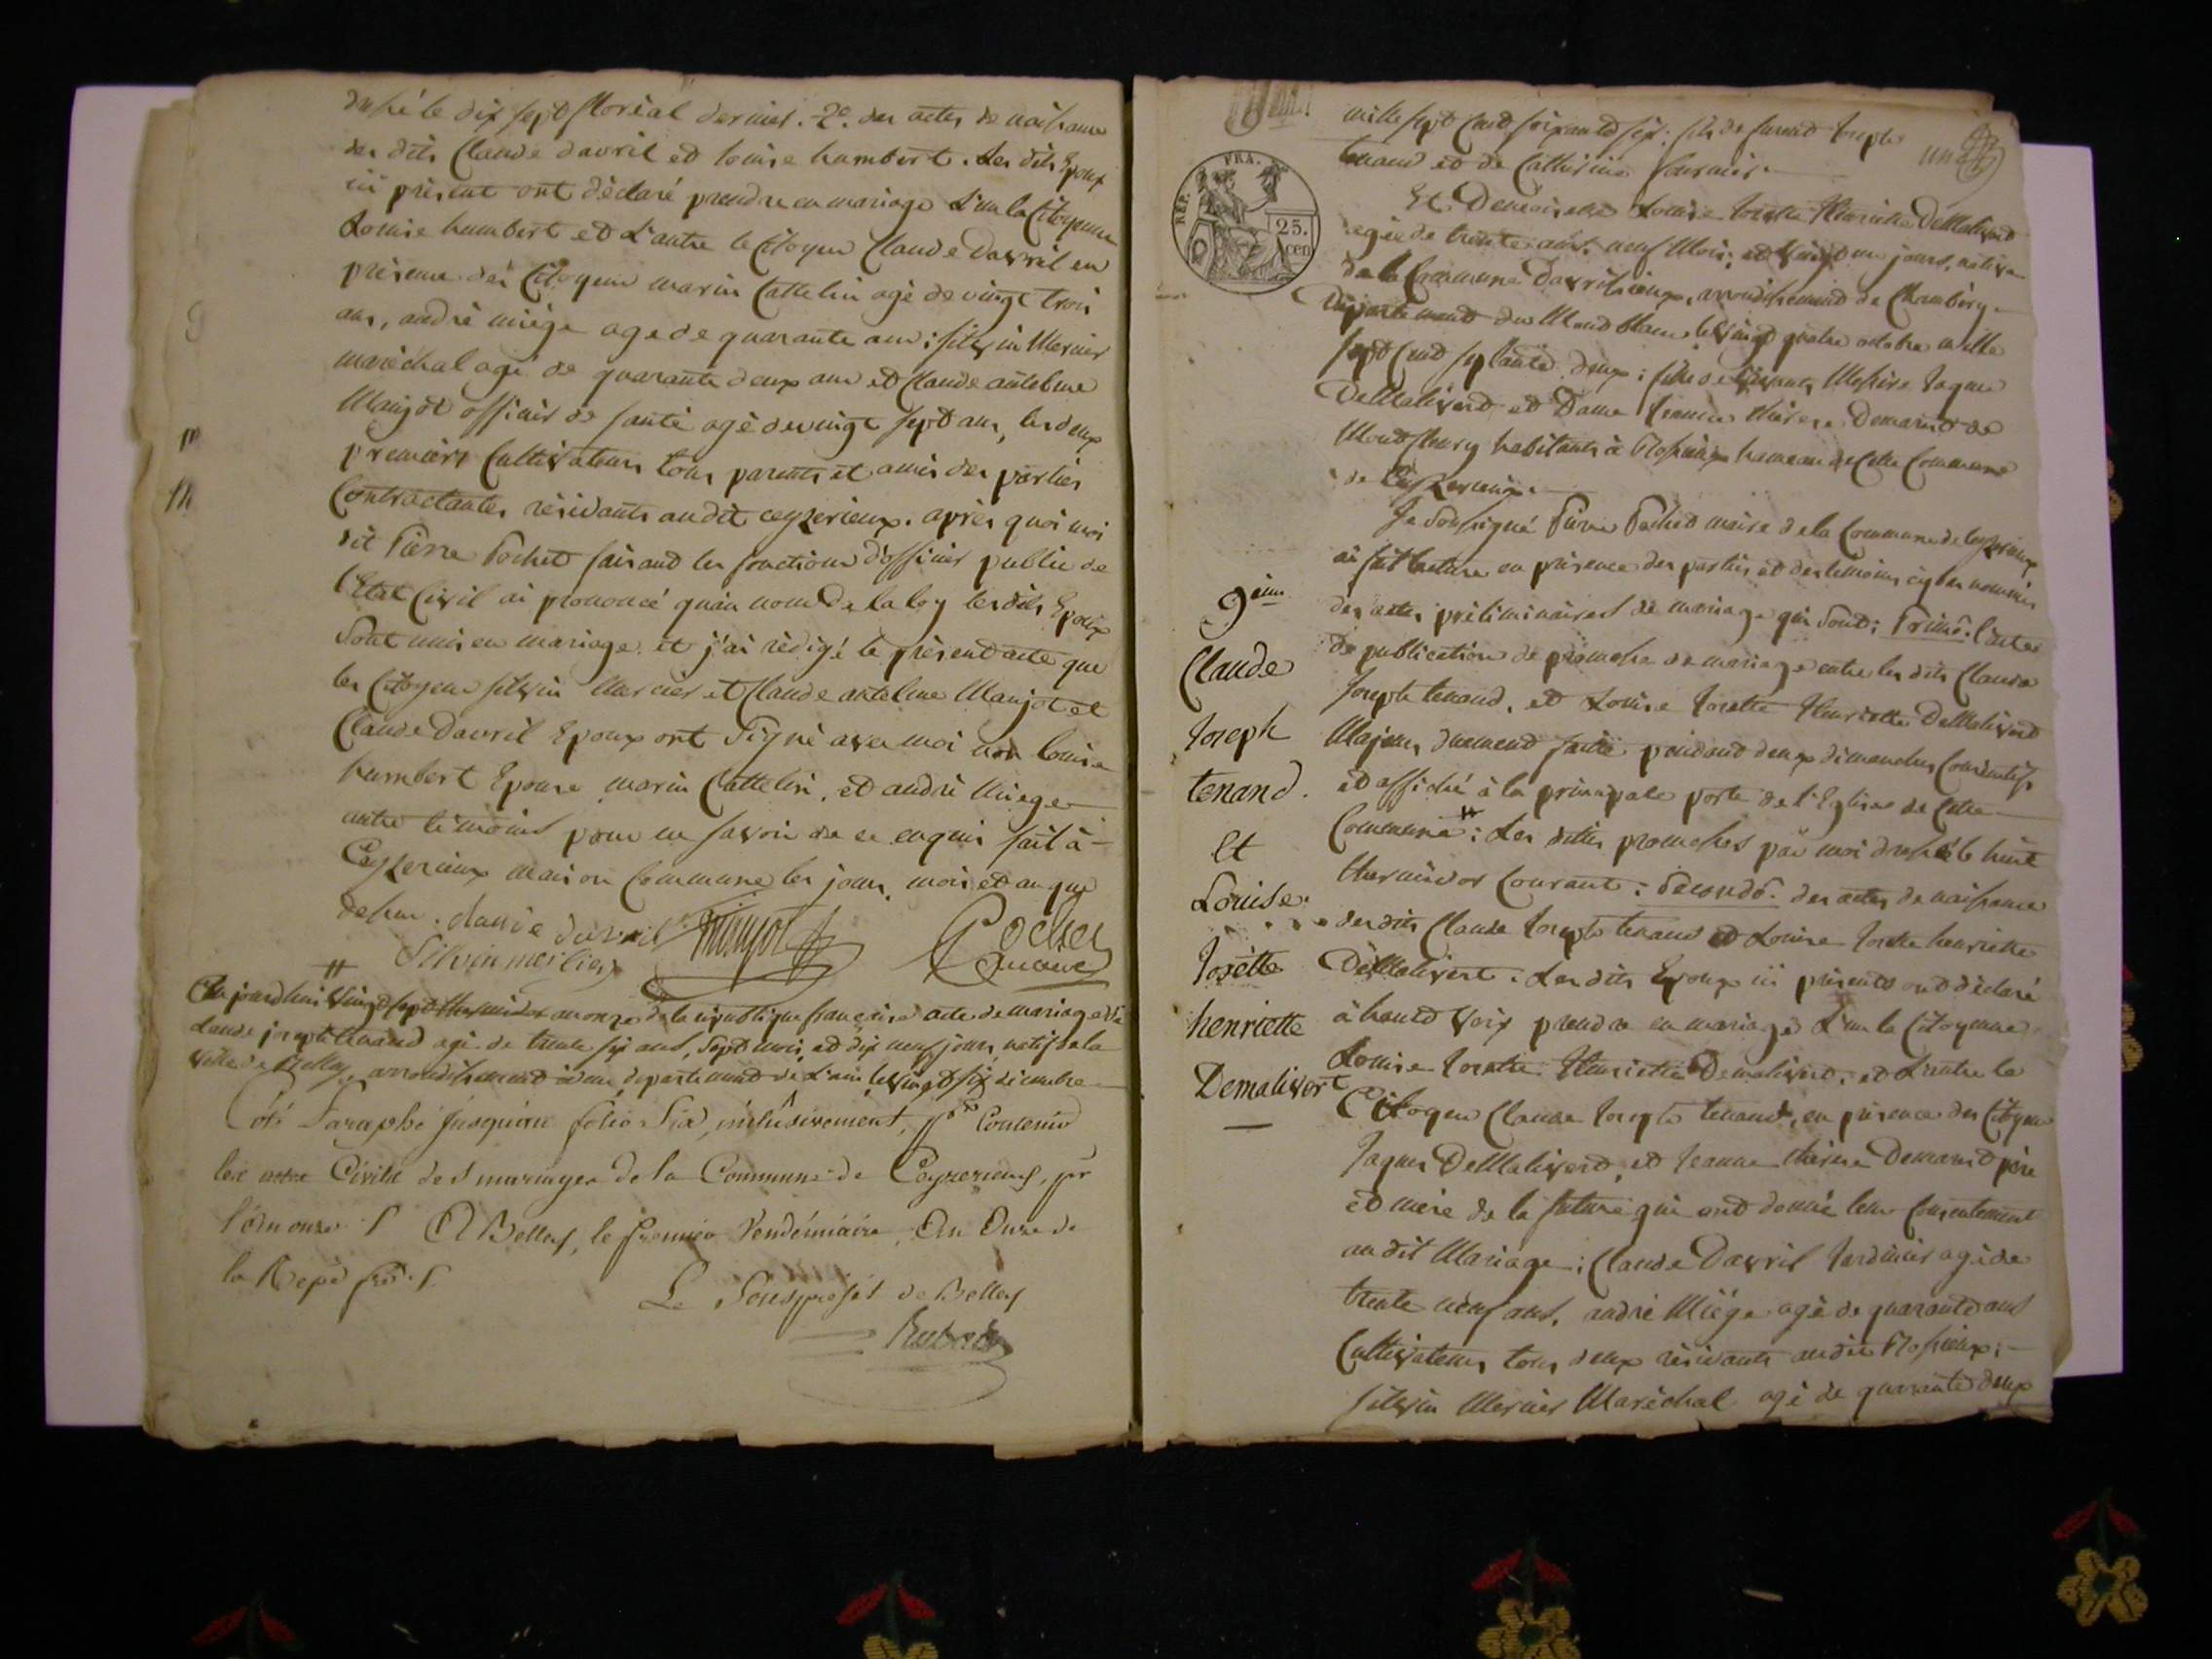 dressé le dix sept floréal dernier. 2º. des actes de naissance
des dits Claude davril et louise humbert. Les dits Epoux
ici présent ont déclaré prendre en mariage L'un la Citoyenne
Louise humbert et L'autre le Citoyen Claude Davril en
présence des Citoyens marin Cattelin agé de vingt trois
ans, andré miège age de quarante ans; silvin Mercier
maréchal agé de quarante deux ans et Claude anthelme
Manjot officier de santé agé de vingt sept ans, les deux
premiers Cultivateurs tous parents et amis des parties
Contractantes résidants audit ceyzerieux. après quoi moi
dit Pierre Pochet faisant les fonctions d'officier public de
l'Etat Civil ai prononcé qu'au nom De la loy les dits Epoux
sont unis en mariage. et j'ai rédigé le présent acte que
les Citoyens silvin Mercier et Claude antelme Manjot et
Claude Davril Epoux ont signé avec moi non louise
humbert Epouse marin Cattelin, et andré Miege
autre témoins pour ne savoir de ce enquis fait à
Ceyzerieux maison Commune les jour, mois et an que
dessus. claude davril Manjot Pochet
Silvin mercier maire
Ce jourdhui vingt sept thermidor an onze de la république française acte de mariage de
Claude joseph tenand agé de trente six ans, sept mois, et dix neuf jours, natif de la
ville de Belley, arrondissement idem, departement de L'ain, le vingt six décembre
Coté Paraphé jusqu'au folio Six, inclusivement, pr Contenir
les actes Civils des mariages de la Commune de Ceyzerieux, pr
l'an onze A Belley, le premier Vendémiaire, An Onze de
la Repe fse.
Le Souspréfet de Belley
un
REP. FRA.
25.
cen
mille sept cent soixante six: fils de furent Joseph
tenand et de Catherine fournier.
Et Demoiselle Louise Josette Henriette DeMalivert
agée de trente ans, neuf Mois, et vingt un jours, native
de la Commune Davrissieux, arrondissement de Chambéry
Département du Mont blanc le vingt quatre octobre mille
sept cent septante deux; fille de vivants Messire Jaques
DeMalivert et Dame Jeanne thérese Demarest de
Montfleury habitants à Flossieux hameau de Cette Commune
de Ceyzerieux.
Je soussigné Pierre Pochet maire de la Commune de Ceyzerieux
ai fait lecture en présence des parties et des témoins cy bas nommés
des actes préliminaires de mariage qui sont: Primò. l'acte
de publication de promesse de mariage entre les dits Claude
Joseph tenand, et Louise Josette Henriette DeMalivert
Majeurs, duement faite pendant deux dimanches Consécutifs
et affiché à la principale porte de l'Eglise de Cette
Commune: Les dittes promesses par moi dressé le huit
thermidor Courant: Secondò. des actes de naissance
des dits Claude Joseph tenand et Louise Josette henriette
DeMalivert. Les dits Epoux ici présents ont déclaré
à haute voix prendre en mariage L'un la Citoyenne
Louise Josette Henriette Demalivert, et L'autre le
Citoyen Claude Joseph tenand, en présence des Citoyen
Jaques DeMalivert, et Jeanne thérese Demarest père
et mère de la future qui ont donné leur Consentement
au dit Mariage; Claude Davril Jardinier agé de
trente neuf ans, andré Miége agé de quarante ans
Cultivateurs tous deux résidants audit Flossieux;
silvin Mercier Maréchal agé de quarante deux
9ème
Claude
Joseph
tenand.
Et
Louise
Josette
henriette
Demalivert